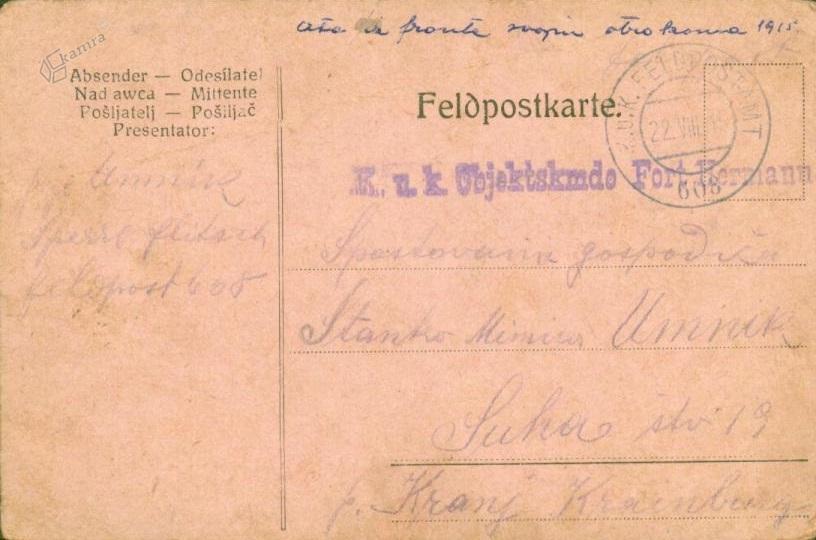 ata iz fronte svojim otrokoma 1915.
kamra
Absender — Odesílatel
Nadawca — Mittente
Pošljatelj — Pošiljač
Presentator:
Feldpostkarte.
K.u.K. FELDPOSTAMT
22.VIII.15
608
K. u. k. Objektskmdo Fort Hermann
Umnik
Sperre Flitsch
Feldpost 608
Spoštovana gospodična
Stanko Mimica Umnik
Suha štv 19
p. Kranj Krainburg